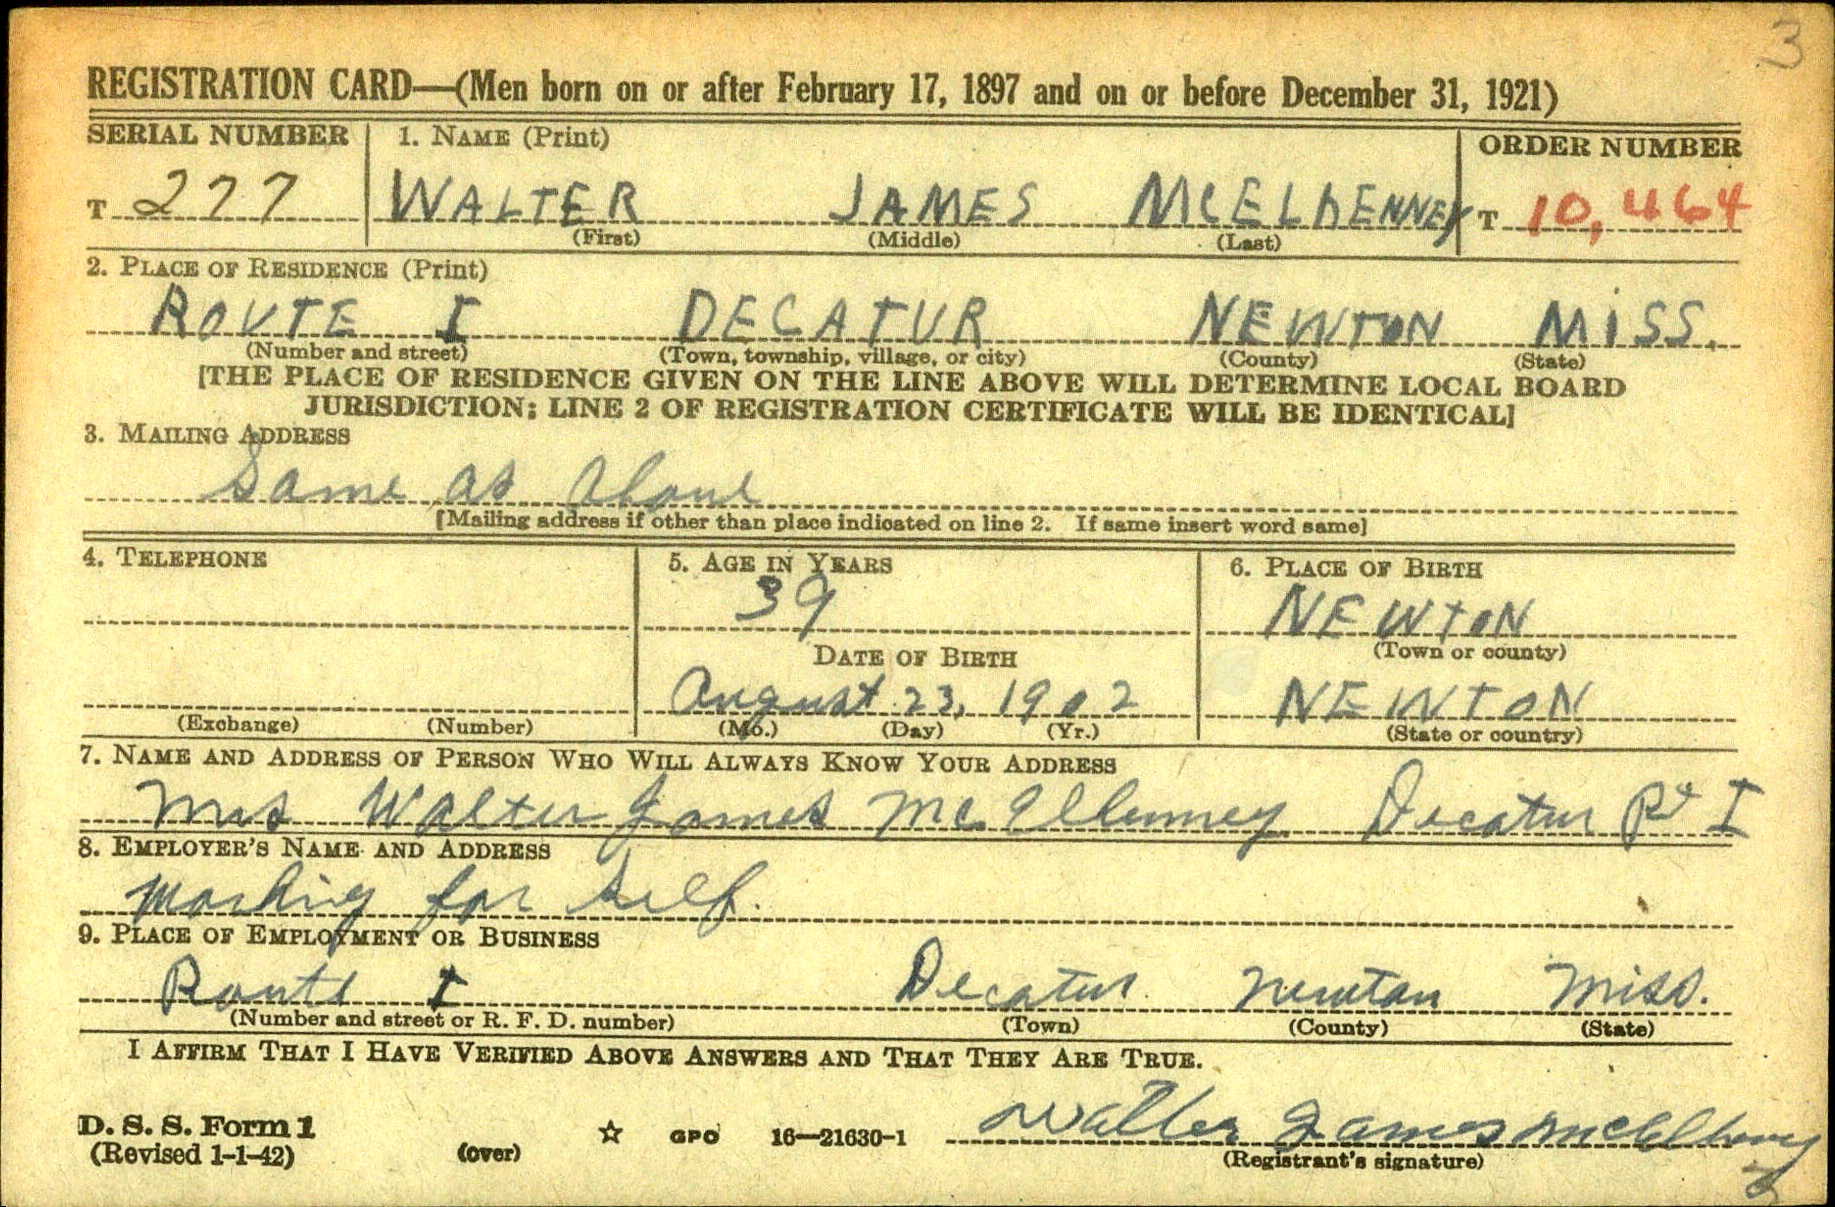 3
REGISTRATION CARD—(Men born on or after February 17, 1897 and on or before December 31, 1921)
SERIAL NUMBER 1. NAME (Print) ORDER NUMBER
T 277 WALTER JAMES MCELHENNEY T 10,464
(First) (Middle) (Last)
2. PLACE OF RESIDENCE (Print)
ROUTE I DECATUR NEWTON MISS.
(Number and street) (Town, township, village, or city) (County) (State)
[THE PLACE OF RESIDENCE GIVEN ON THE LINE ABOVE WILL DETERMINE LOCAL BOARD
JURISDICTION; LINE 2 OF REGISTRATION CERTIFICATE WILL BE IDENTICAL]
3. MAILING ADDRESS
Same as above
[Mailing address if other than place indicated on line 2. If same insert word same]
4. TELEPHONE 5. AGE IN YEARS 6. PLACE OF BIRTH
39 NEWTON
DATE OF BIRTH (Town or county)
August 23, 1902 NEWTON
(Exchange) (Number) (Mo.) (Day) (Yr.) (State or country)
7. NAME AND ADDRESS OF PERSON WHO WILL ALWAYS KNOW YOUR ADDRESS
Mrs Walter James McElhenney Decatur Rt I
8. EMPLOYER'S NAME AND ADDRESS
Working for self.
9. PLACE OF EMPLOYMENT OR BUSINESS
Route I Decatur Newton Miss.
(Number and street or R. F. D. number) (Town) (County) (State)
I AFFIRM THAT I HAVE VERIFIED ABOVE ANSWERS AND THAT THEY ARE TRUE.
D. S. S. Form 1
(Revised 1-1-42) (over) ☆ GPO 16—21630-1 Walter James McElhenney
(Registrant's signature)